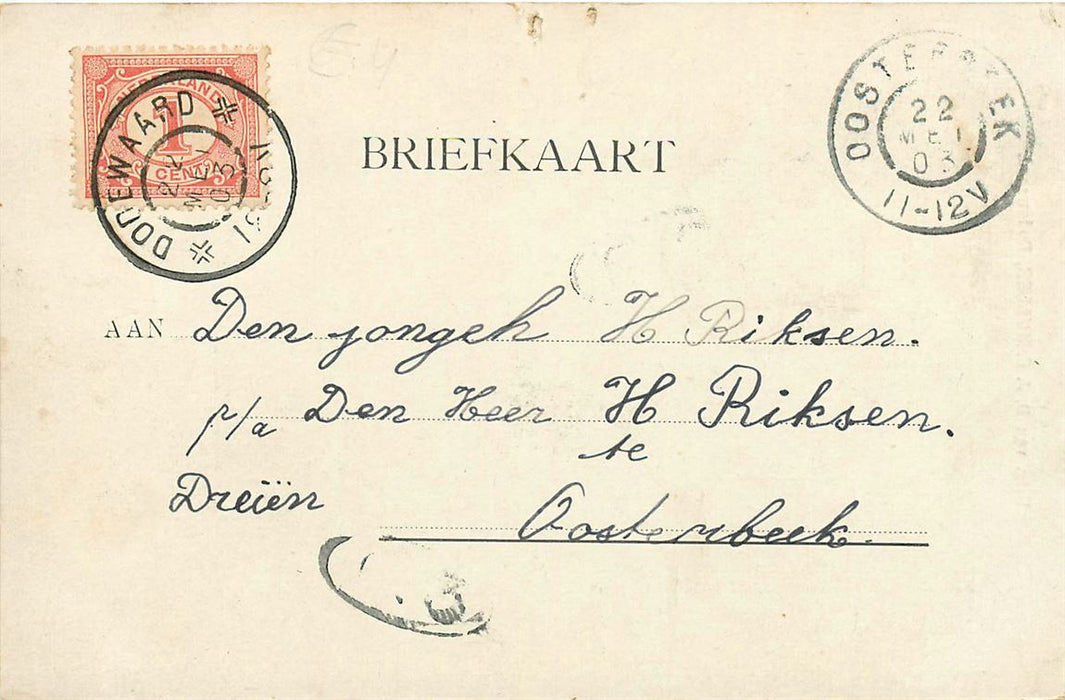 NEDERLAND
1
CENT
DODEWAARD
22
MEI
03
OOSTERBEEK
22
MEI
03
11-12V
BRIEFKAART
AAN Den jongeh H Riksen.
p/a Den Heer H Riksen.
te
Dreiën Oosterbeek.